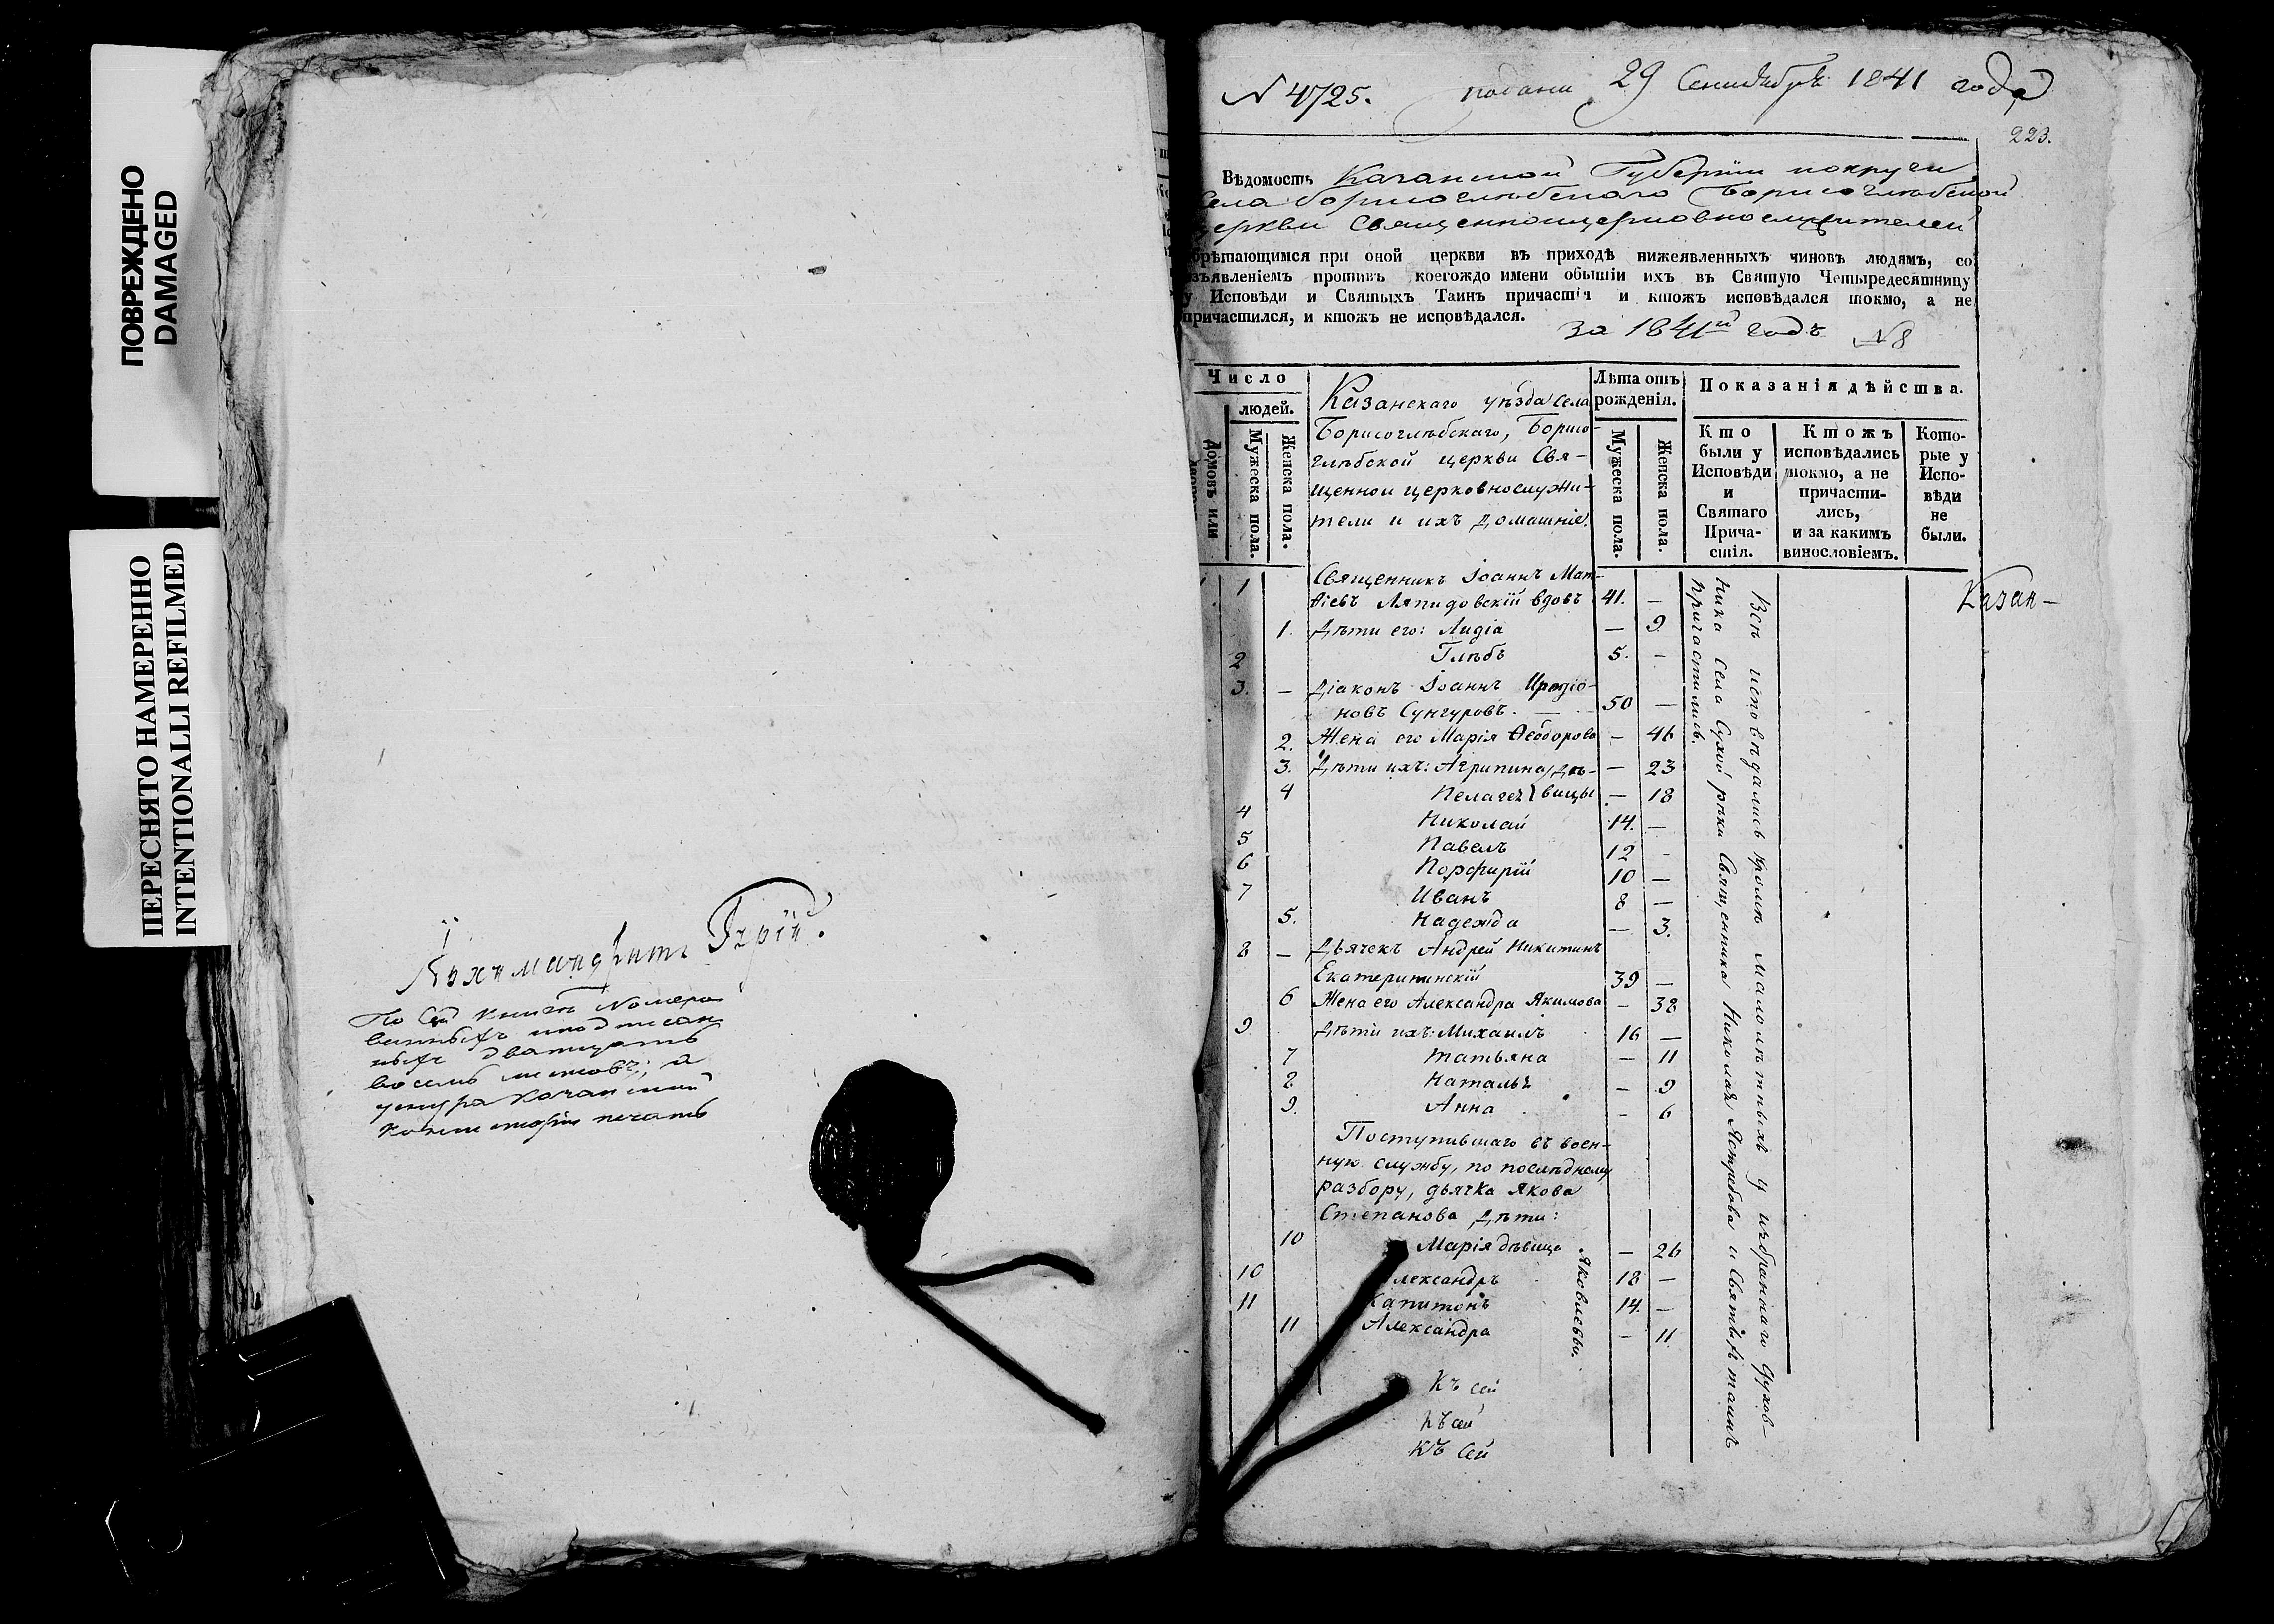 ПОВРЕЖДЕНО
DAMAGED
ПЕРЕСНЯТО НАМЕРЕННО
INTENTIONALLI REFILMED
Архимандритъ Гурій.
По сей книгѣ номеро
ванныхъ и подписан
ныхъ дватцать
восемь листовъ; а
у шнура казанской
консисторіи печать
N 4725. подана 29 Сентября 1841 года
223.
Вѣдомость Казанской Губерніи и округи
села Борисоглѣбскаго Борисоглѣбской
церкви священноицерковнослужителей
обрѣтающимся при оной церкви въ приходѣ нижеявленныхъ чиновъ людямъ, со
изъявленіемъ противъ коегождо имени обытіи ихъ въ Святую Четыредесятницу
у Исповѣди и Святыхъ Таинъ причастія и ктожъ исповѣдался токмо, а не
причастился, и ктожъ не исповѣдался.
за 1841й годъ N 8
Число
людей.
Домовъ или
Мужеска пола.
Женска пола.
Казанскаго уѣзда села
Борисоглѣбскаго, Борисо-
глѣбской церкви Свя-
щенно и церковнослужи-
тели и ихъ домашніе.
Лѣта отъ
рожденія.
Мужеска пола.
Женска пола.
Показанія дѣйства.
Кто
были у
Исповѣди
и
Святаго
Прича-
стія.
Ктожъ
исповѣдались
токмо, а не
причасти-
лись,
и за какимъ
винословіемъ.
Кото-
рые у
Испо-
вѣди
не
были.
1 1 Священникъ Іоаннъ Мат-
ѳіевъ Ляпидовскій вдовъ 41. —
1. Дѣти его: Лидіа — 9.
2 Глѣбъ 5. —
3. — Діаконъ Іоаннъ Иродіо-
новъ Сунгуровъ. — 50 —
2. Жена его Марія Ѳеодорова — 46
3. Дѣти ихъ: Агрипина дѣ- — 23
4 Пелагея вицы — 18
4 Николай 14. —
5 Павелъ 12 -
6 Порфирій 10 —
7 Иванъ 8 —
5. Надежда — 3.
8 — Дьячекъ Андрей Никитинъ
Екатерининскій 39 —
6 Жена его Александра Якимова — 38
9 Дѣти ихъ: Михаилъ 16 —
7 Татьяна — 11
8 Наталья — 9
9. Анна - 6
Поступившаго въ воен-
ную службу, по послѣднему
разбору, дьячка Якова
Степанова дѣти:
10 Марія дѣвица — 26
10 Александръ 18 —
11 Капитонъ 14. —
11 Александра — 11.
Яковлевы.
Всѣ исповѣдались кромѣ малолѣтныхъ у избраннаго духов-
ника села Сухой рѣки Священника Николая Ястребова и Святыхъ таинъ
причастились.
Казан-
Къ сей
Къ сей
Къ сей